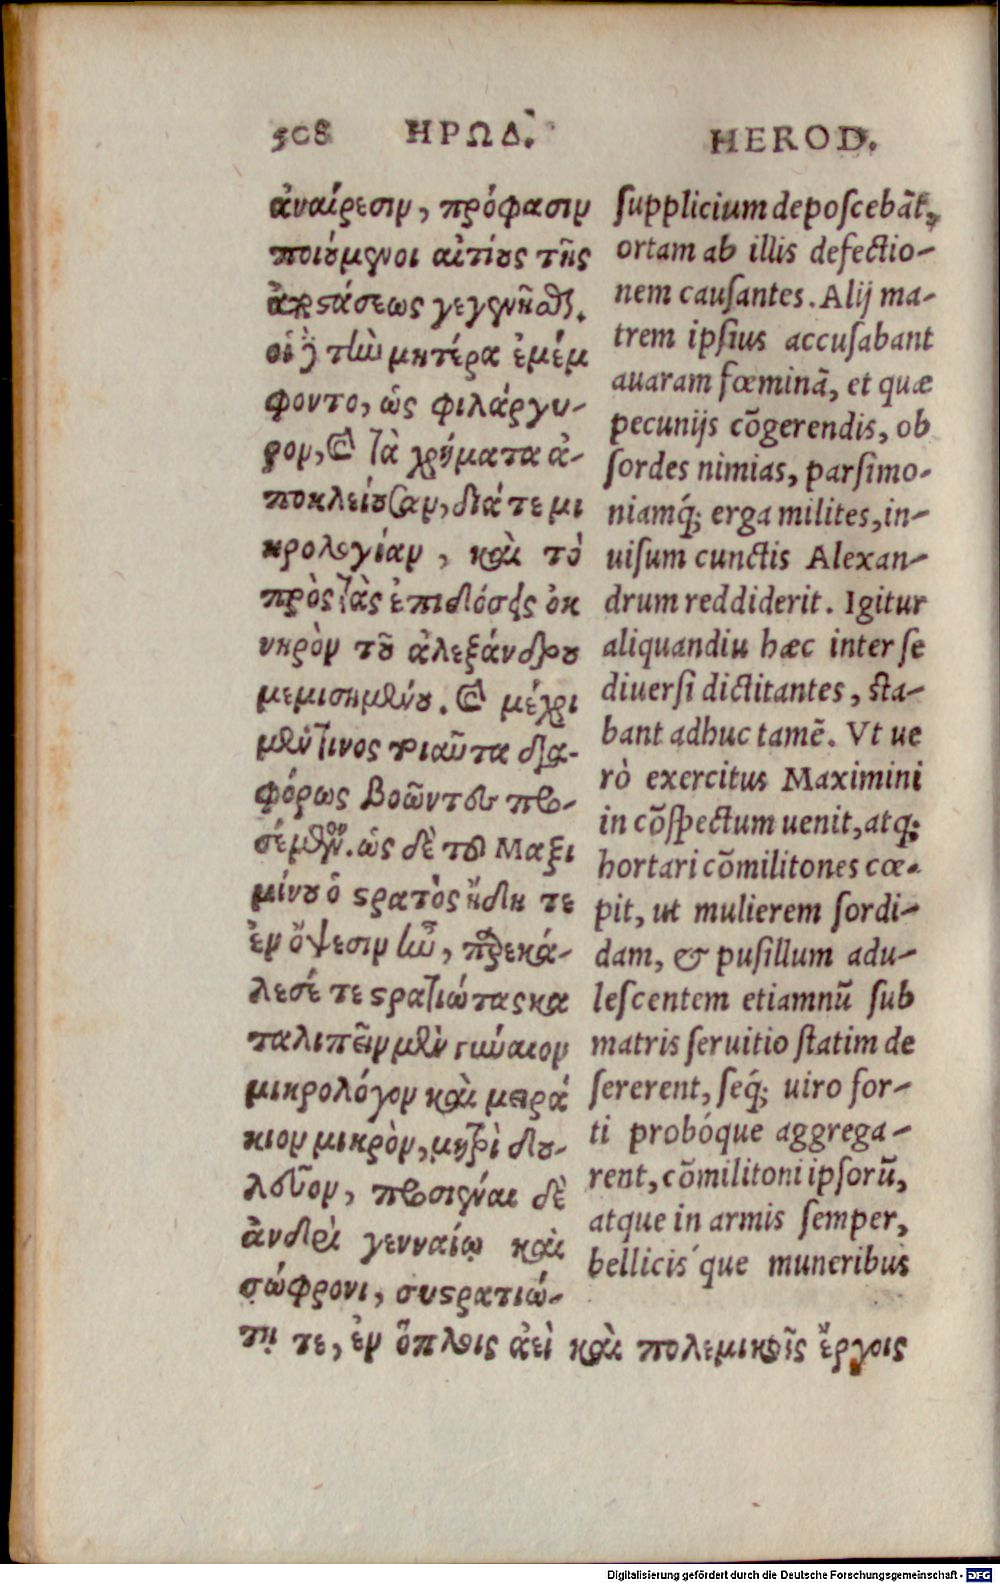 508 ΗΡΩΔ. HEROD.
ἀναίρεσιν, πρόφασιν
ποιούμενοι αἰτίους τῆς
ἀποστάσεως γεγενῆσθαι.
οἱ δὲ τὴν μητέρα ἐμέμ
φοντο, ὡς φιλάργυ-
ρον, καὶ τὰ χρήματα ἀ-
ποκλείουσαν, διά τε μι
κρολογίαν, καὶ τὸ
πρὸς τὰς ἐπιδόσεις ὀκ
νηρὸν τοῦ ἀλεξάνδρου
μεμισημένου. καὶ μέχρι
μέν τινος τοιαῦτα δια-
φόρως βοῶντες προ-
σέμενον. ὡς δὲ τοῦ Μαξι
μίνου ὁ στρατὸς ἤδη τε
ἐν ὄψεσιν ἦν, προσεκά-
λεσέ τε στρατιώτας κα
ταλιπεῖν μὲν γύναιον
μικρολόγον καὶ μειρά
κιον μικρὸν, μητρὶ δου-
λεῦον, προσιέναι δὲ
ἀνδρὶ γενναίῳ καὶ
σώφρονι, συστρατιώ-
τῃ τε, ἐν ὅπλοις ἀεὶ καὶ πολεμικοῖς ἔργοις
supplicium deposcebãt,
ortam ab illis defectio-
nem causantes. Alij ma-
trem ipsius accusabant
auaram fœminã, et quæ
pecunijs cõgerendis, ob
sordes nimias, parsimo-
niamq́; erga milites, in-
uisum cunctis Alexan-
drum reddiderit. Igitur
aliquandiu hæc inter se
diuersi dictitantes, sta-
bant adhuc tamẽ. Vt ue
rò exercitus Maximini
in cõspectum uenit, atq;
hortari cõmilitones cœ-
pit, ut mulierem sordi-
dam, & pusillum adu-
lescentem etiamnũ sub
matris seruitio statim de
sererent, seq́; uiro for-
ti probóque aggrega-
rent, cõmilitoni ipsorũ,
atque in armis semper,
bellicis´que muneribus
Digitalisierung gefördert durch die Deutsche Forschungsgemeinschaft - DFG